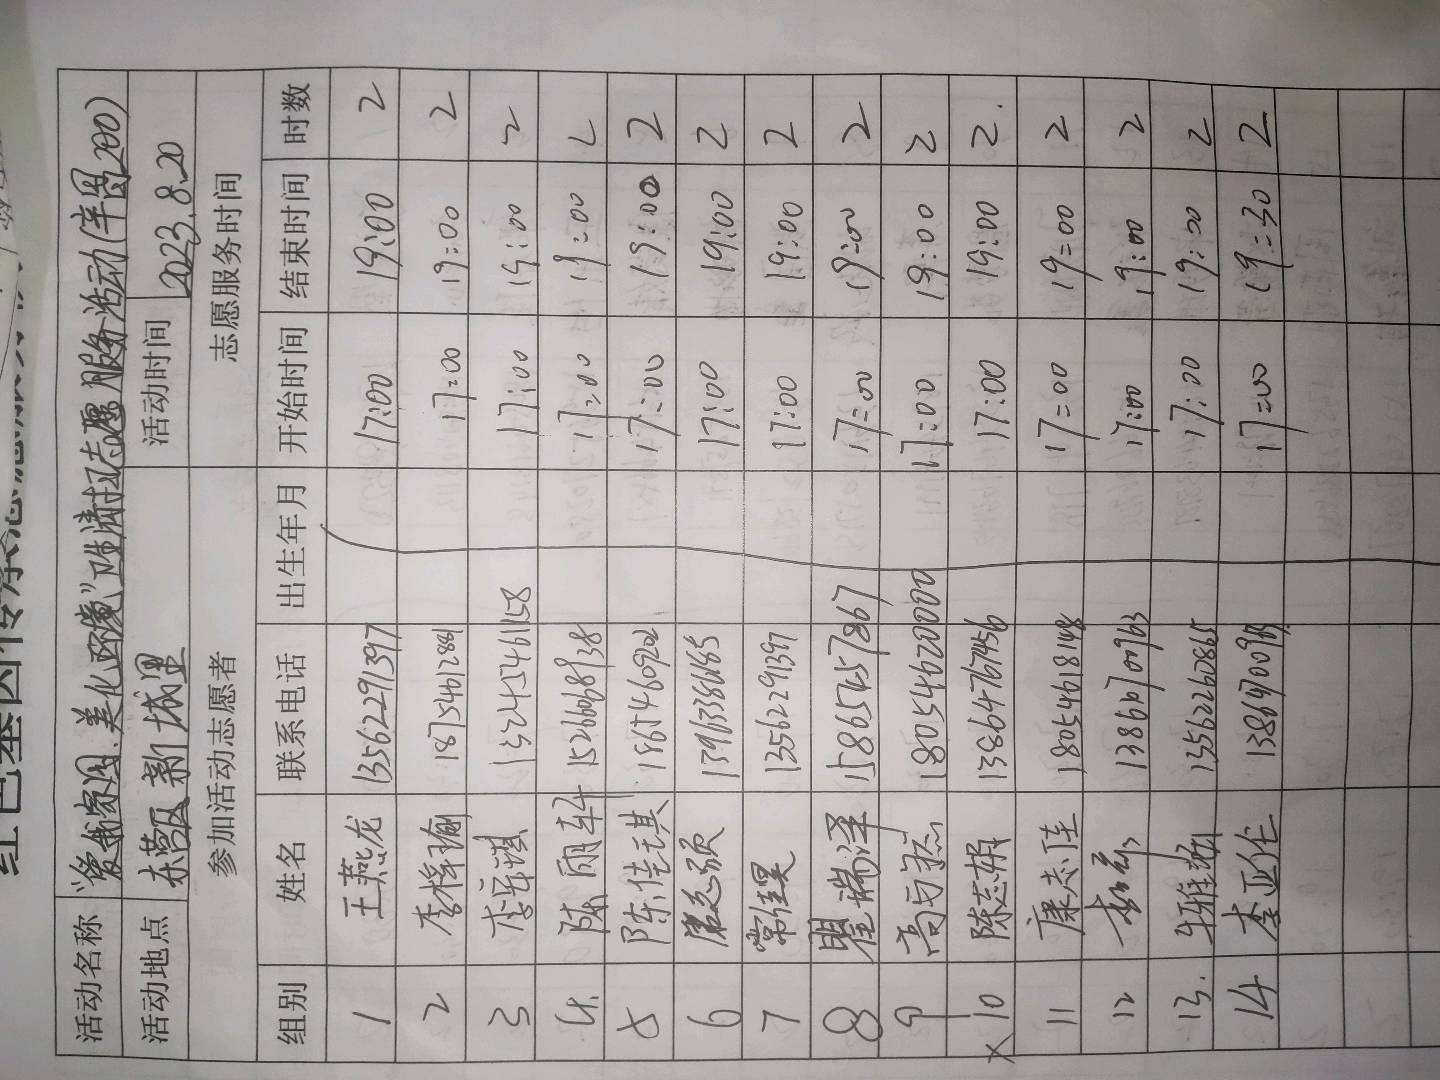 活动名称 "爱我家园、美化环境"卫生清扫志愿服务活动(车田200)
活动地点 东营区新城里 活动时间 2023.8.20
参加活动志愿者 志愿服务时间
组别 姓名 联系电话 出生年月 开始时间 结束时间 时数
1 王燕龙 13562291397 17:00 19:00 2
2 李梓瑜 18754612881 17:00 19:00 2
3 李岳淇 15245461158 17:00 19:00 2
4. 陈丽军 15266068938 17:00 19:00 2
5 陈佳琪 18654609202 17:00 19:00 2
6 17:00 19:00 2
7 常佳昊 13562291397 17:00 19:00 2
8 瞿瑞泽 15865457867 17:00 19:00 2
9 18054620000 17:00 19:00 2
×10 陈志娟 13864767456 17:00 19:00 2.
11 康志连 18054618148 17:00 19:00 2
12 17:00 19:00 2
13. 13562262865 17:00 19:00 2
14 李亚伦 17:00 19:30 2